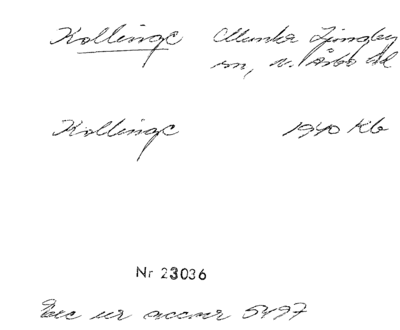 Kollinge Munka Ljungby
sn, N. Åsbo hd
Kollinge 1940 Kb
Nr 23036
Exc ur accner 5497